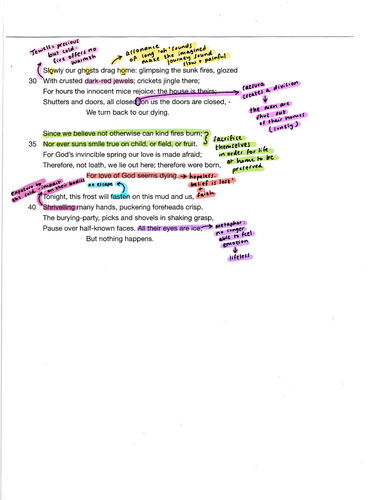 Jewels = precious
but cold.
fire offers no
warmth
→ assonance
of long 'oh' sounds
make the imagined
journey sound
slow + painful
Slowly our ghosts drag home: glimpsing the sunk fires, glozed
30 With crusted dark-red jewels; crickets jingle there;
For hours the innocent mice rejoice: the house is theirs;
Shutters and doors, all closed: on us the doors are closed, -
We turn back to our dying.
→ caesura
creates a division
the men are
shut out
of their homes
(lonely)
Since we believe not otherwise can kind fires burn;
35 Nor ever suns smile true on child, or field, or fruit.
For God's invincible spring our love is made afraid;
Therefore, not loath, we lie out here; therefore were born,
For love of God seems dying.
sacrifice
themselves
in order for life
at home to be
preserved
→ hopeless.
belief is lost!
+
faith
exposure to
the cold - impact
on their bodies
no escape
Tonight, this frost will fasten on this mud and us,
Shrivelling many hands, puckering foreheads crisp.
40 The burying-party, picks and shovels in shaking grasp,
Pause over half-known faces. All their eyes are ice,
But nothing happens.
→ metaphor
no longer
able to feel
emotion
lifeless